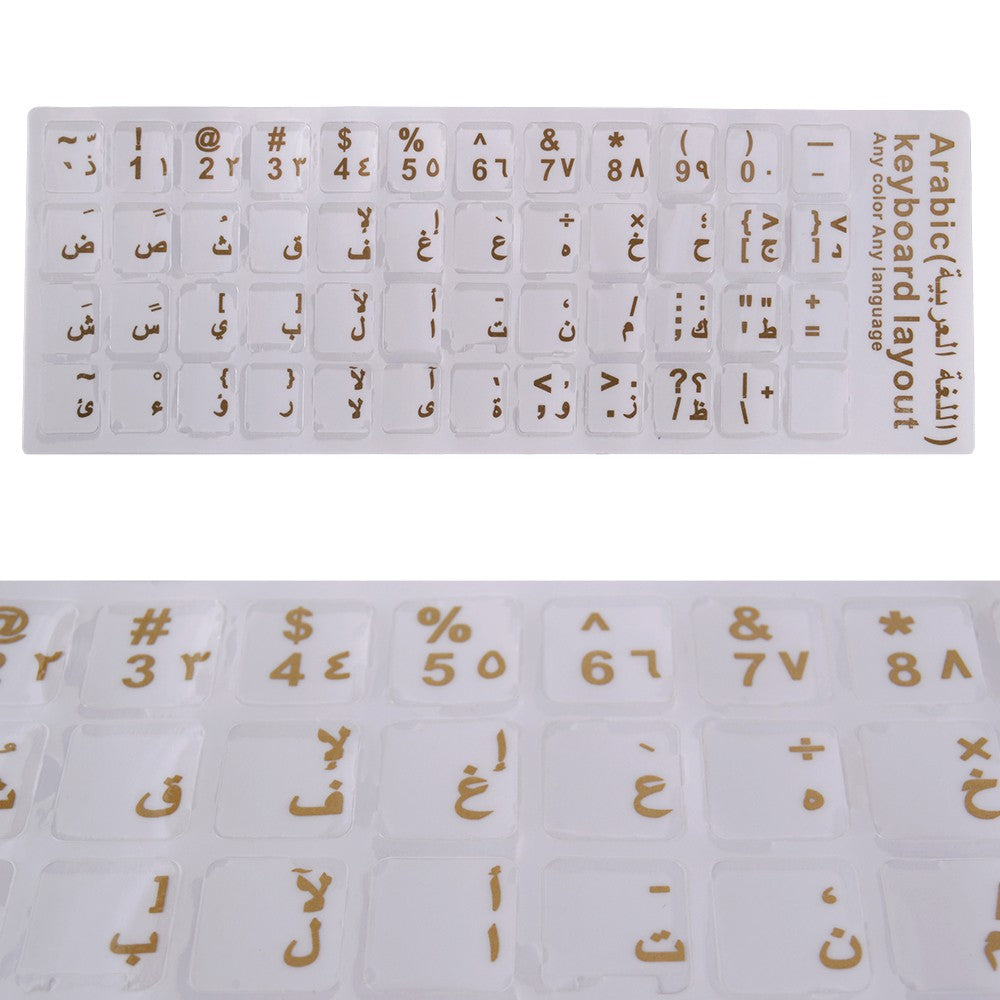 ~ ّ ` ذ
! 1 ١
@ 2 ٢
# 3 ٣
$ 4 ٤
% 5 ٥
^ 6 ٦
& 7 ٧
* 8 ٨
( 9 ٩
) 0 ٠
— –
َ ض
ً ص
ُ ث
ق
لإ ف
إ غ
` ع
÷ ه
× خ
؛ ح
{ > ج [
} < د ]
شَ
سً
[ ي
] ب
لآ ل
أ ا
- ت
، ن
/ م
: : ; ك
" " ' ط
+ =
~ ئ
ْ ء
{ ؤ
} ر
لآ لا
آ ى
- ة
< , و
> . ز
? ؟ / ظ
| + \
Arabic(اللغة العربية)
keyboard layout
Any color Any language
@ 2 ٢
# 3 ٣
$ 4 ٤
% 5 ٥
^ 6 ٦
& 7 ٧
* 8 ٨
ُ ث
ق
لإ ف
إ غ
` ع
÷ ه
× خ
] ب
لآ ل
أ ا
- ت
، ن